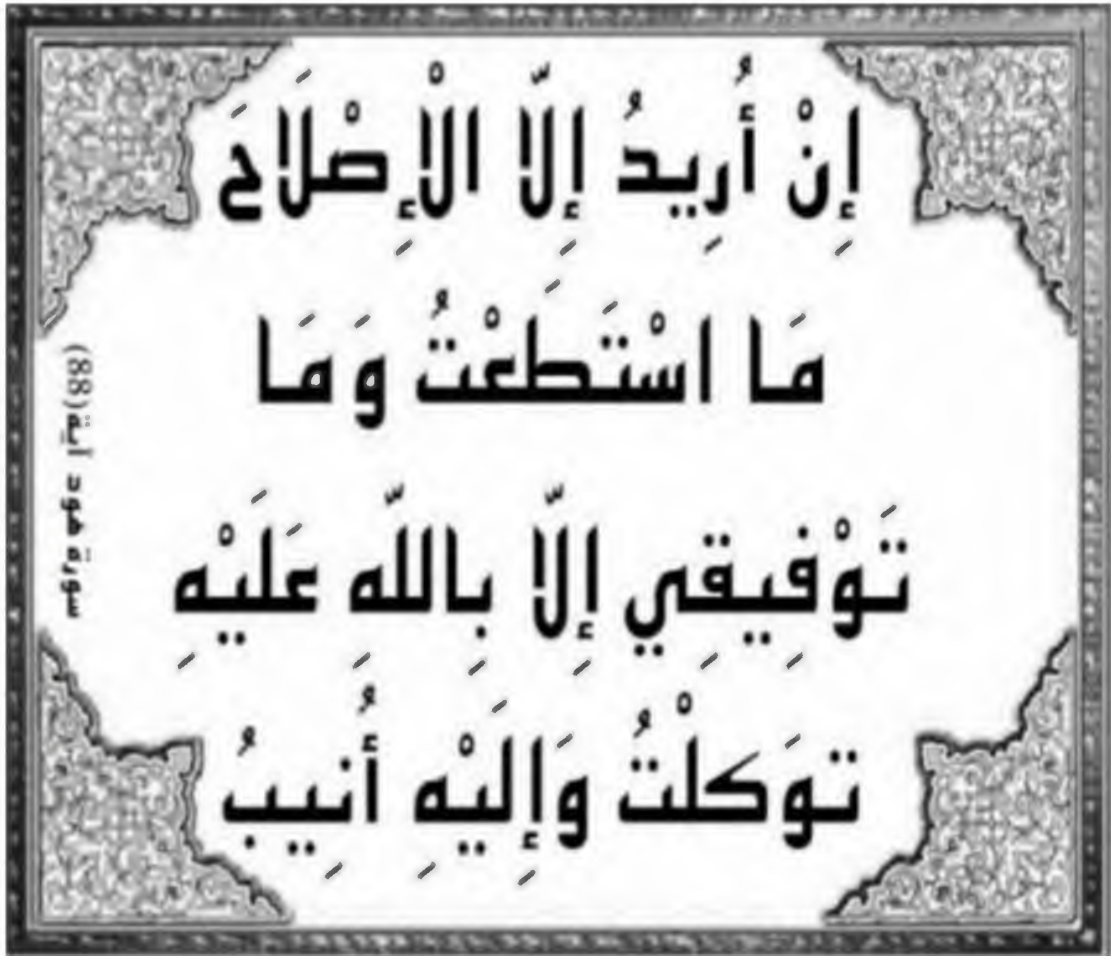 إِنْ أُرِيدُ إِلَّا الْإِصْلَاحَ
مَا اسْتَطَعْتُ وَمَا
تَوْفِيقِي إِلَّا بِاللَّهِ عَلَيْهِ
توَكلْتُ وَإِلَيْهِ أُنِيبُ
سورة هود آية(88)